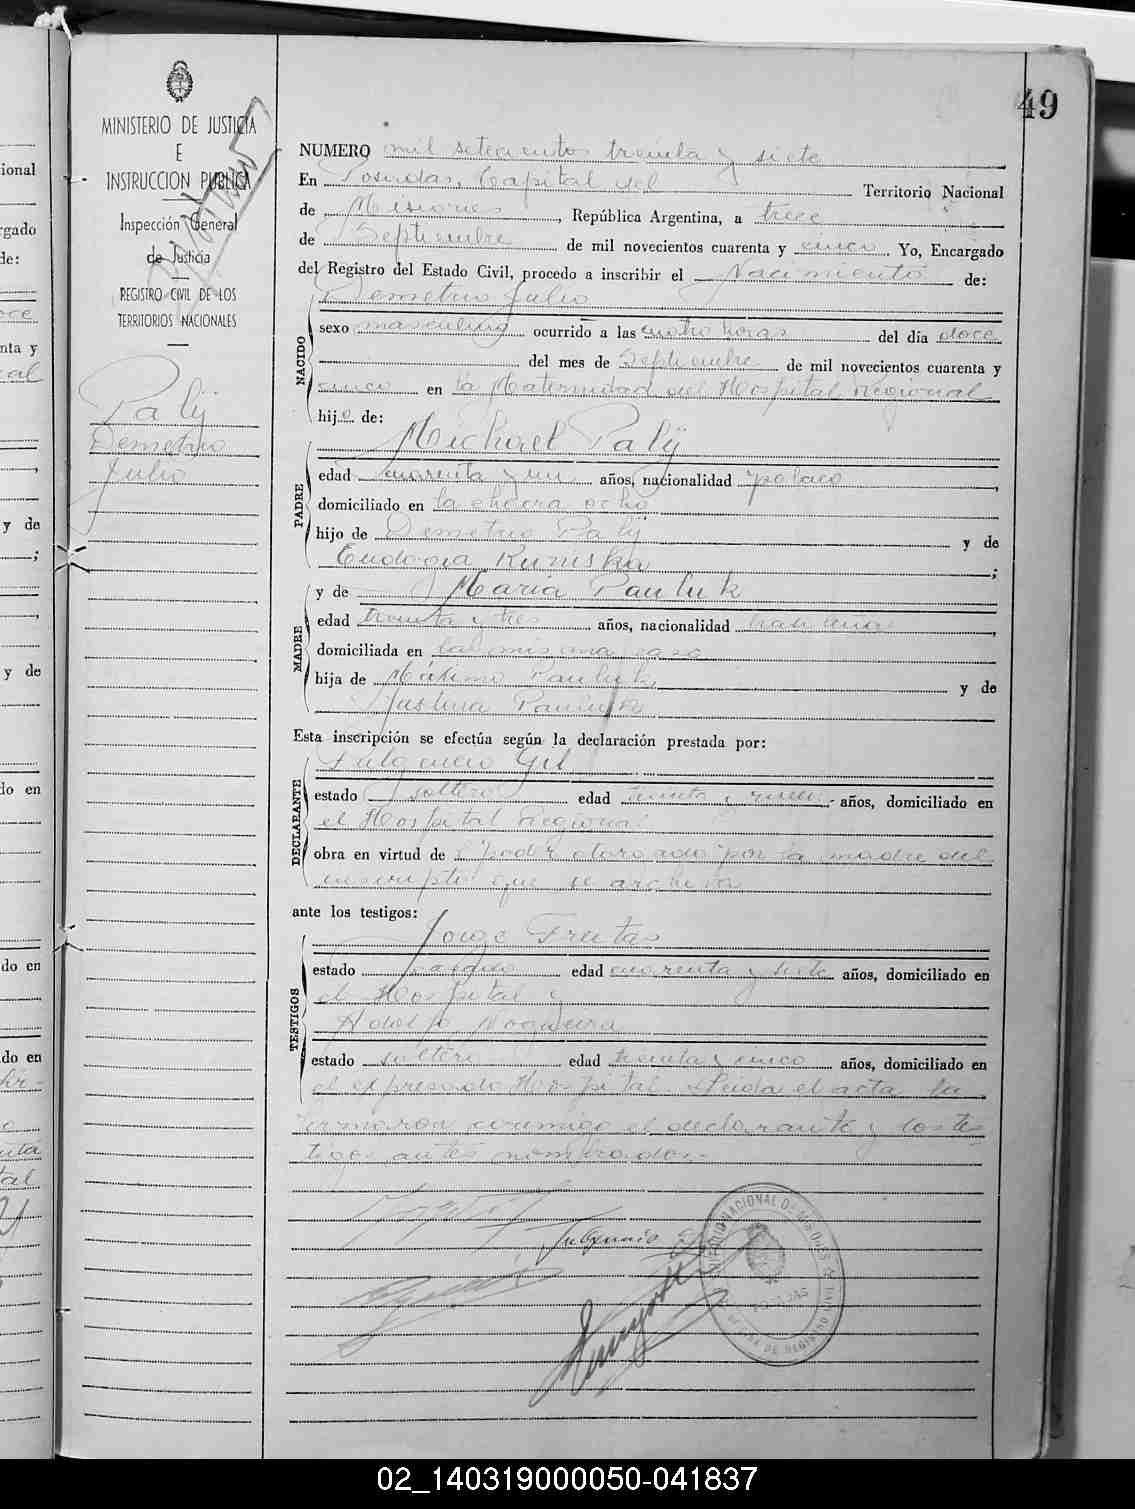 49
MINISTERIO DE JUSTICIA
E
INSTRUCCION PUBLICA
Inspección General
de Justicia
REGISTRO CIVIL DE LOS
TERRITORIOS NACIONALES
Palij
Demetrio
Julio
NUMERO mil setecientos treinta y siete
En Posadas, Capital del Territorio Nacional
de Misiones, República Argentina, a trece
de Septiembre de mil novecientos cuarenta y cinco Yo, Encargado
del Registro del Estado Civil, procedo a inscribir el Nacimiento de:
NACIDO
Demetrio Julio
sexo masculino ocurrido a las cuatro horas del día doce
del mes de Septiembre de mil novecientos cuarenta y
cinco en la Maternidad del Hospital Regional
hijo de:
PADRE
Michael Palij
edad cuarenta y un años, nacionalidad polaco
domiciliado en la chacra ocho
hijo de Demetrio Palij y de
Eudogia ;
MADRE
y de Maria Pauluk
edad treinta y tres años, nacionalidad ,
domiciliada en la misma casa
hija de Máximo Pauluk y de
Justina Pauluk
Esta inscripción se efectúa según la declaración prestada por:
DECLARANTE
Fulgencio Gil
estado soltero edad treinta y años, domiciliado en
el Hospital Regional
obra en virtud de poder otorgado por la madre del
inscripto que se archiva
ante los testigos:
TESTIGOS
Jorge Freitas
estado casado edad cuarenta y siete años, domiciliado en
el Hospital y
Adolfo Nogueira
estado soltero edad treinta y cinco años, domiciliado en
el expresado Hospital. Leida el acta la
firmaron conmigo el declarante y los tes
tigos antes nombrados.-
Fulgencio Gil
POSADAS
02_140319000050-041837